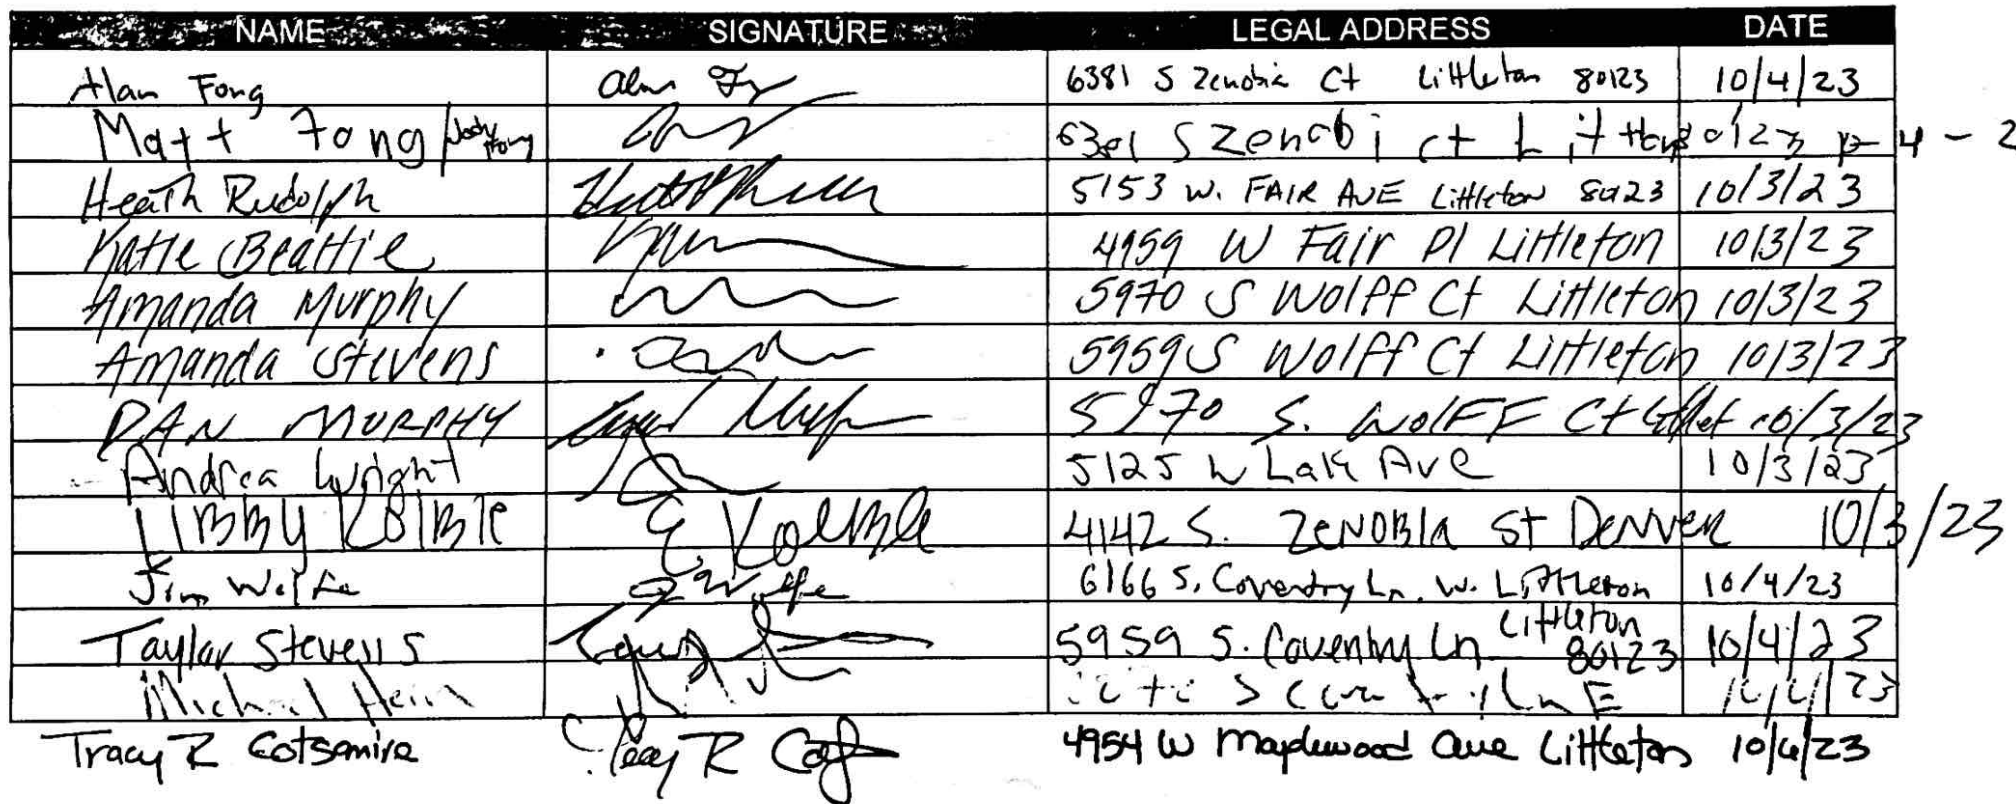 NAME SIGNATURE LEGAL ADDRESS DATE
Alan Fong Alan Fg 6381 S Zenobia Ct Littleton 80123 10/4/23
Matt Fong 6381 S Zenobi ct Litt 80123
Heath Rudolph 5153 W. FAIR AVE Littleton 80123 10/3/23
Katie Beattie 4959 W Fair Pl Littleton 10/3/23
Amanda Murphy 5970 S Wolff Ct Littleton 10/3/23
Amanda Stevens 5959 S Wolff Ct Littleton 10/3/23
DAN MURPHY 5970 S. WolFF Ct 10/3/23
Andrea Wright 5125 W Lake Ave 10/3/23
LIBBY E. 4142 S. ZENOBIA St DENVER 10/3/23
Jim Wolfe J Wolfe 6166 S. Coventry Ln. W. Littleton 10/4/23
Taylor Stevens 5959 S. Coventry Ln Littleton 80123 10/4/23
Michael Hein Ln E
Tracy R Tracy R 4954 W Maplewood Ave Littleton 10/4/23